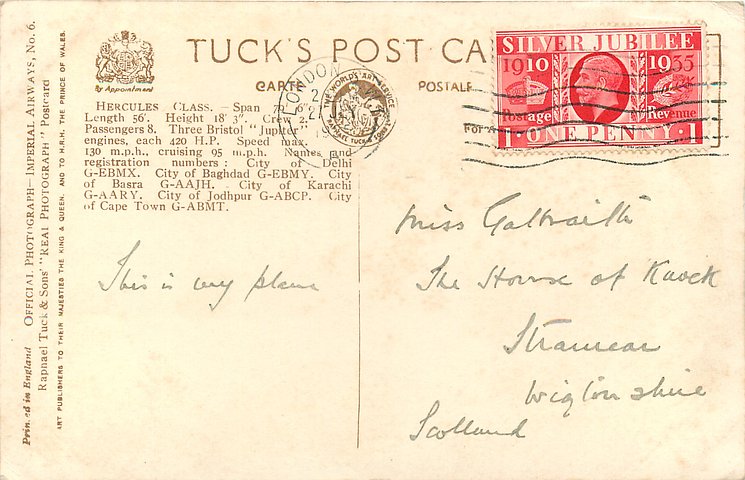 TUCK'S POST CA
By Appointment
CARTE
POSTALE
HERCULES CLASS. — Span
Length 56'. Height 18' 3". Crew 2.
Passengers 8. Three Bristol "Jupiter"
engines, each 420 H.P. Speed max.
130 m.p.h., cruising 95 m.p.h. Names and
registration numbers: City of Delhi
G-EBMX. City of Baghdad G-EBMY. City
of Basra G-AAJH. City of Karachi
G-AARY. City of Jodhpur G-ABCP. City
of Cape Town G-ABMT.
LONDON
THE WORLD'S ART SERVICE
RAPHAEL TUCK & SONS
FOR
SILVER JUBILEE
1910 1935
Postage Revenue
1 ONE PENNY 1
This is my plane
Miss Galbraith
The House of Knock
Stranraer
Wigtonshire
Scotland
Printed in England OFFICIAL PHOTOGRAPH—IMPERIAL AIRWAYS, No. 6.
Raphael Tuck & Sons' "REAL PHOTOGRAPH" Postcard
ART PUBLISHERS TO THEIR MAJESTIES THE KING & QUEEN, AND TO H.R.H. THE PRINCE OF WALES.